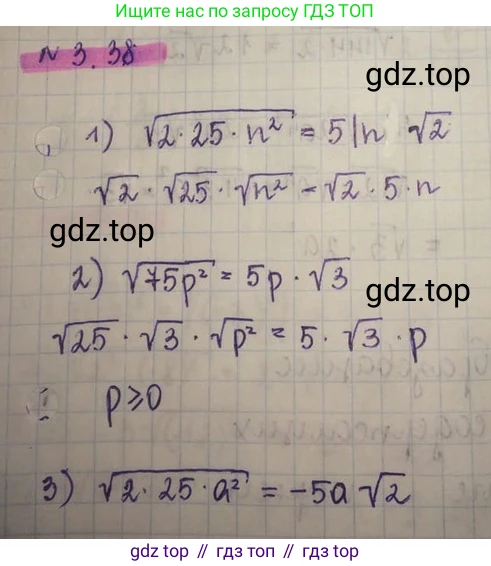 Ищите нас по запросу ГДЗ ТОП
N 3.38
gdz.top
1) √(2·25·n²) = 5|n √2
√2 · √25 · √n² - √2 · 5 · n
gdz.top
2) √(75p²) = 5p · √3
gdz.top
√25 · √3 · √p² = 5 · √3 · p
p ≥ 0
gdz.top
gdz.top
3) √(2·25·a²) = -5a √2
gdz.top // гдз топ // gdz.top